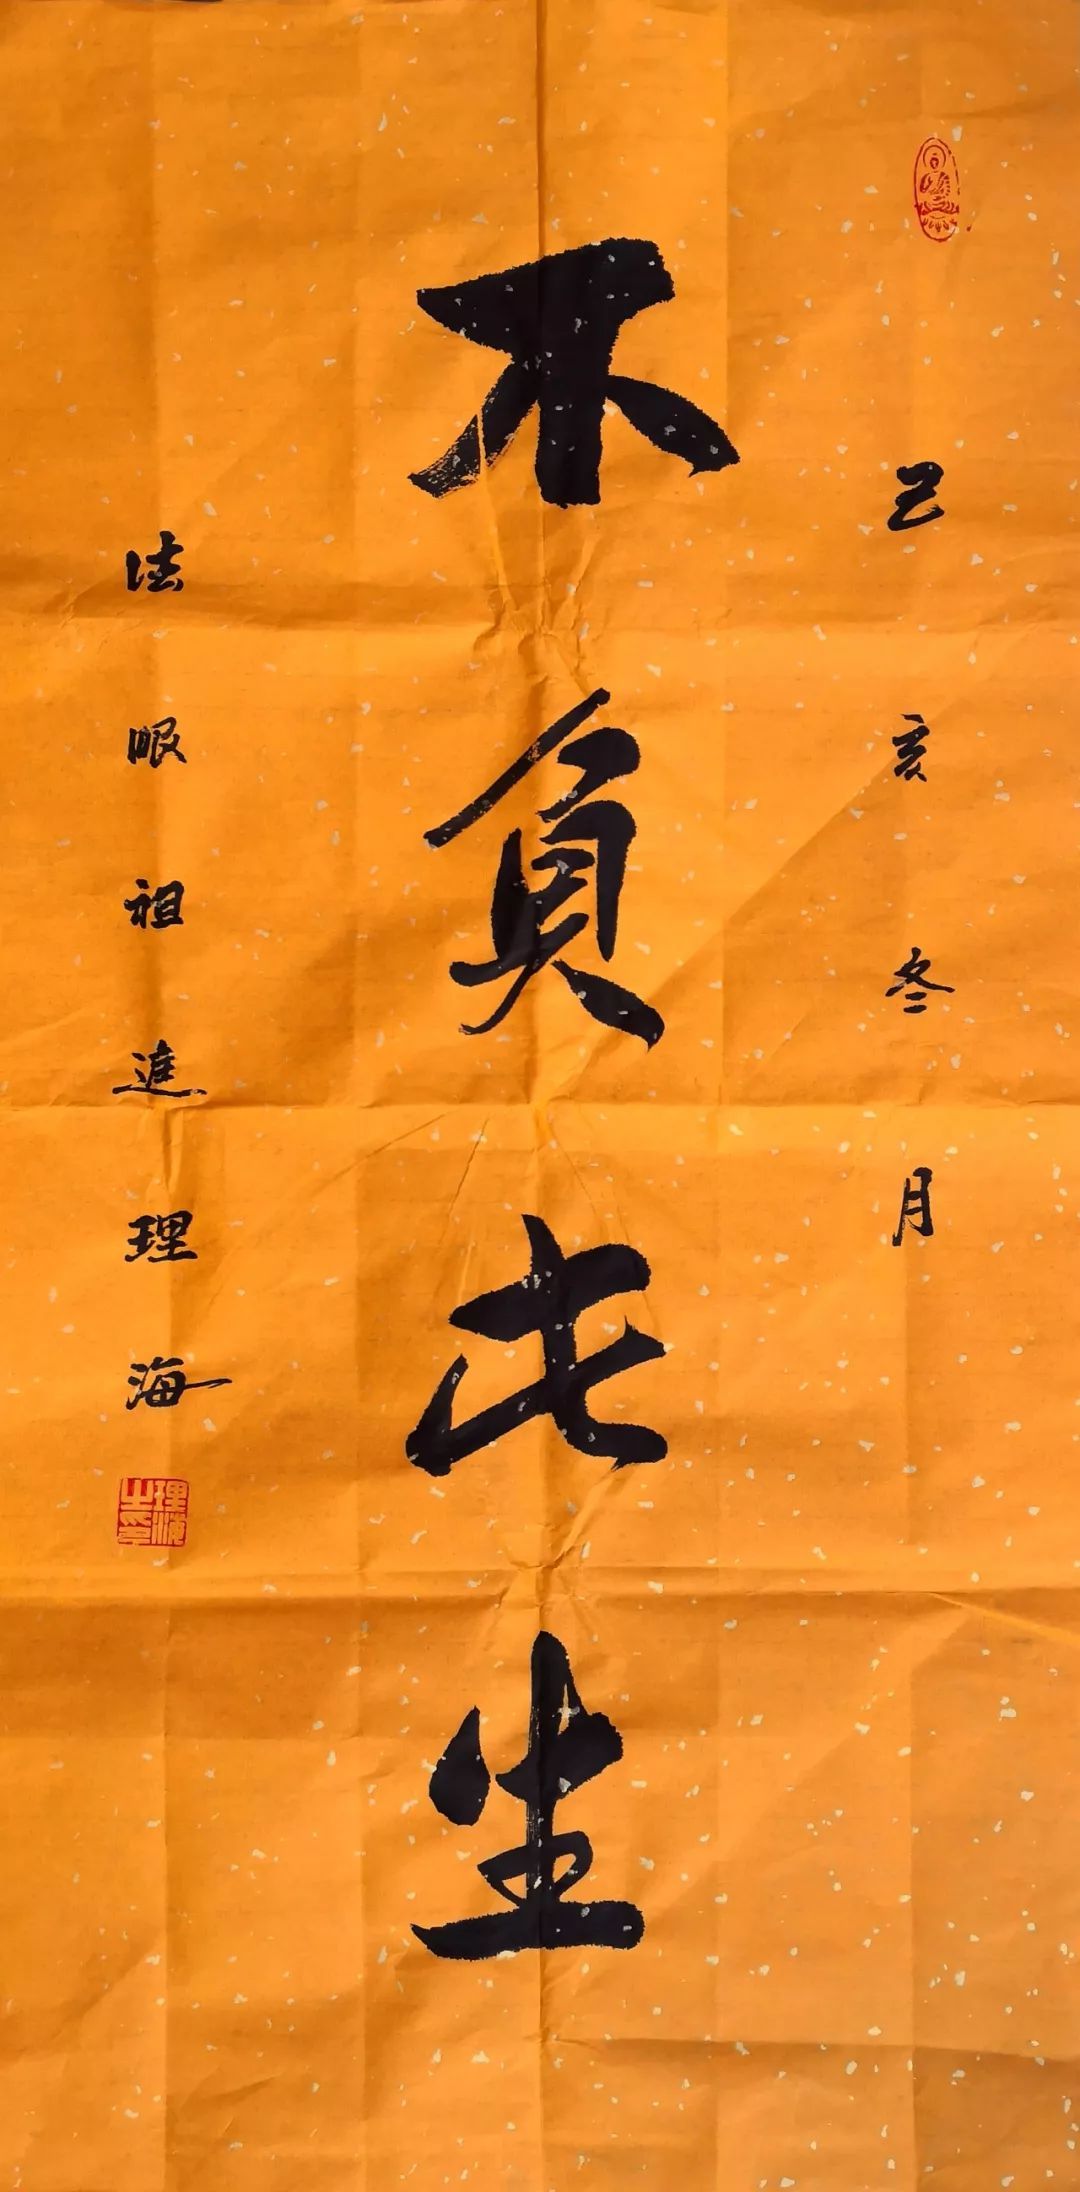 己亥冬月
不负此生
法眼祖庭理海
理海之印